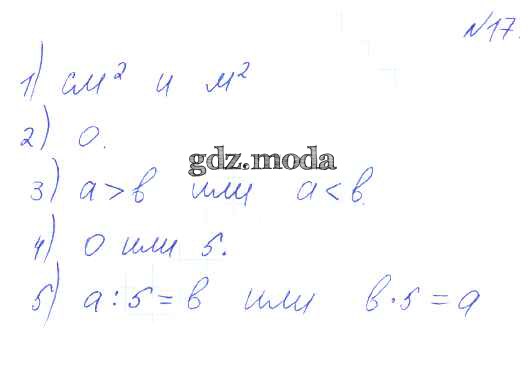 №17.
1) см² и м²
2) 0.
gdz.moda
3) a > b или a < b.
4) 0 или 5.
5) a : 5 = b или b · 5 = a